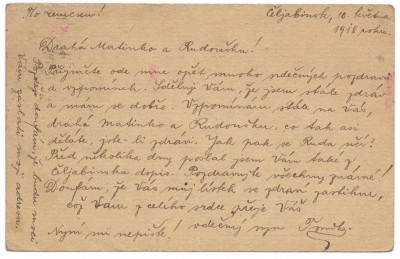 Čeljabinsk, 10. května
1918 roku.
Drahá Matinko a Rudoušku!
Přijměte ode mne opět mnoho vděčných pozdravů
a vzpomínek. Sděluji Vám, že jsem stále zdráv
a mám se dobře. Vzpomínám stále na Vás,
drahá Matinko a Rudoušku, co tak asi
děláte, jste-li zdrávi. Jak pak se Ruda učí?
Před několika dny poslal jsem Vám také z
Čeljabinska dopis. Pozdravujte všechny známé!
Doufám, že Vás můj lístek ve zdraví zastihne,
což Vám z celého srdce přeje Váš
Nyní mi nepište! vděčný syn
Později doufám, že budu moci
Vám zaslati moji adresu.